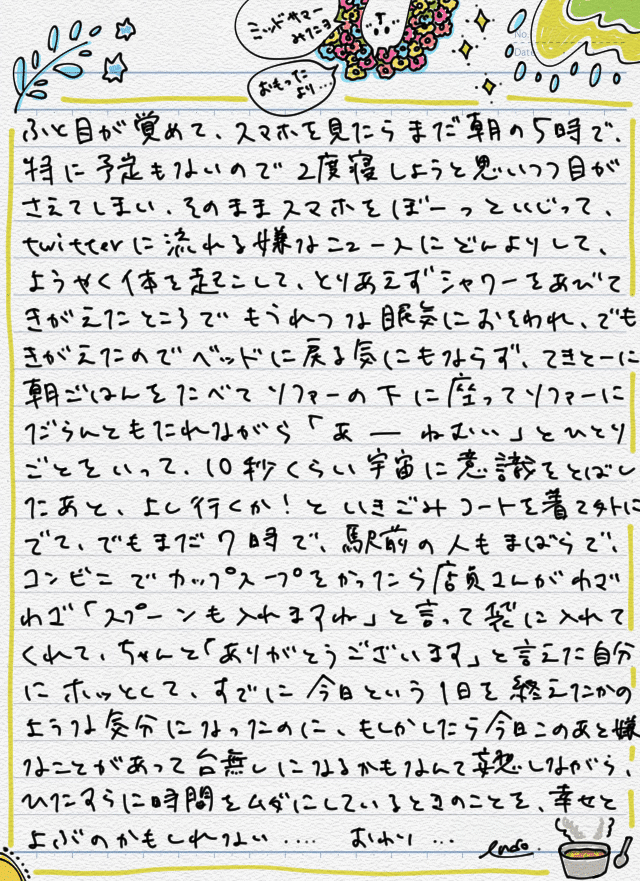 ミッドサマー
みてこョ
おもった
より…
No.
Date
ふと目が覚めて、スマホを見たらまだ朝の5時で、
特に予定もないので2度寝しようと思いつつ目が
さえてしまい、そのままスマホをぼーっといじって、
twitterに流れる嫌なニュースにどんよりして、
ようやく体を起こして、とりあえずシャワーをあびて
きがえたところでもうれつな眠気におそわれ、でも
きがえたのでベッドに戻る気にもならず、てきとーに
朝ごはんをたべてソファーの下に座ってソファーに
だらんともたれながら「あーねむい」とひとり
ごとをいって、10秒くらい宇宙に意識をとばし
たあと、よし行くか!といきごみコートを着て外に
でて、でもまだ7時で、駅前の人もまばらで、
コンビニでカップスープをかったら店員さんがわざ
わざ「スプーンも入れますね」と言って袋に入れて
くれて、ちゃんと「ありがとうございます」と言えた自分
にホッとして、すでに今日という1日を終えたかの
ような気分になったのに、もしかしたら今日このあと嫌
なことがあって台無しになるかもなんて妄想しながら、
ひたすらに時間をムダにしているときのことを、幸せと
よぶのかもしれない…. おわり…